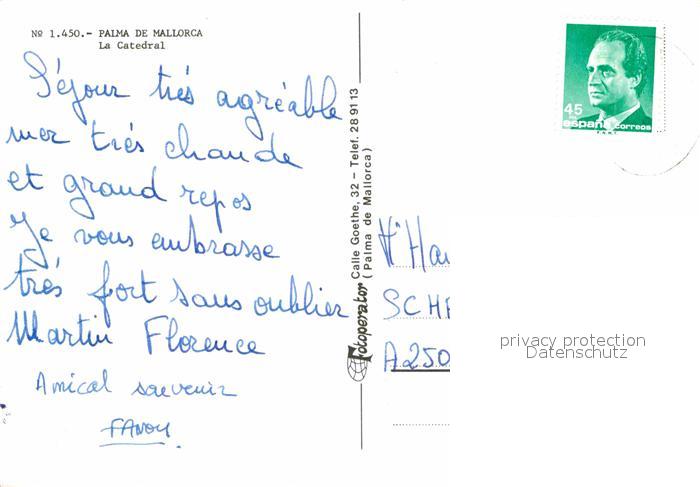 Nº 1.450.- PALMA DE MALLORCA
La Catedral
Séjour très agréable
mer très chaude
et grand repos
Je vous embrasse
très fort sans oublier
Martin Florence
Amical souvenir
Fotoperator Calle Goethe, 32 - Telef. 28 91 13
(Palma de Mallorca)
45
españa correos
SCH
A250
privacy protection
Datenschutz